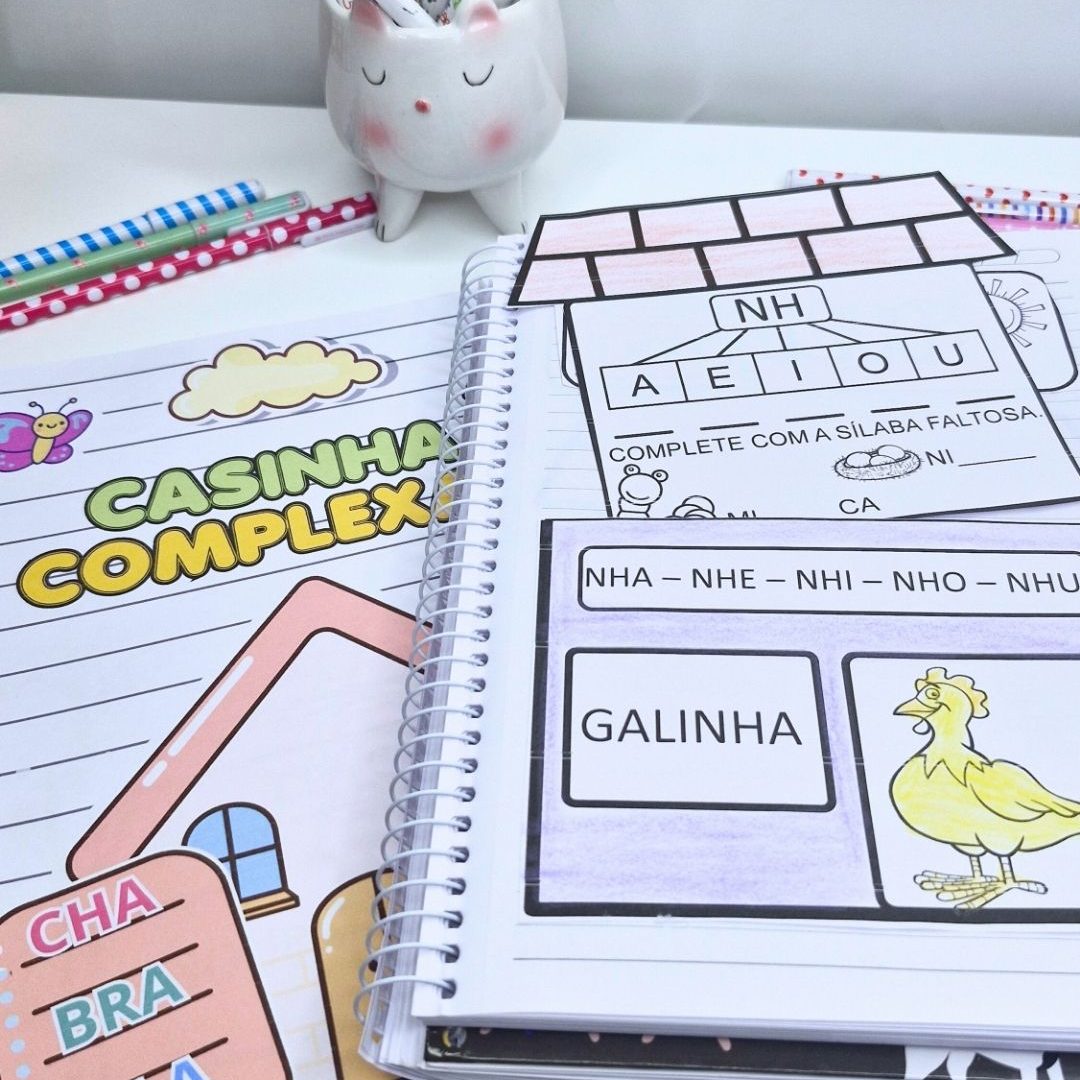 CASINHA
CHA
BRA
NH
A E I O U
COMPLETE COM A SÍLABA FALTOSA.
NI
CA
NHA – NHE – NHI – NHO – NHU
GALINHA